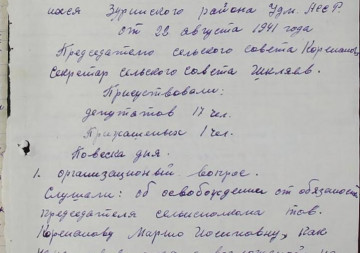 ихся Зуринского района Удм АССР.
от 22 августа 1941 года
Председатель сельского совета Корепанова
Секретарь сельского совета Шкляев.
Присутствовали:
депутатов 17 чел.
Приглашенных 1 чел.
Повеска дня.
1. организационый вопрос.
Слушали: об освобождении от обязаности
председателя сельисполкома тов.
Корепанову Марию Иосиповну, как